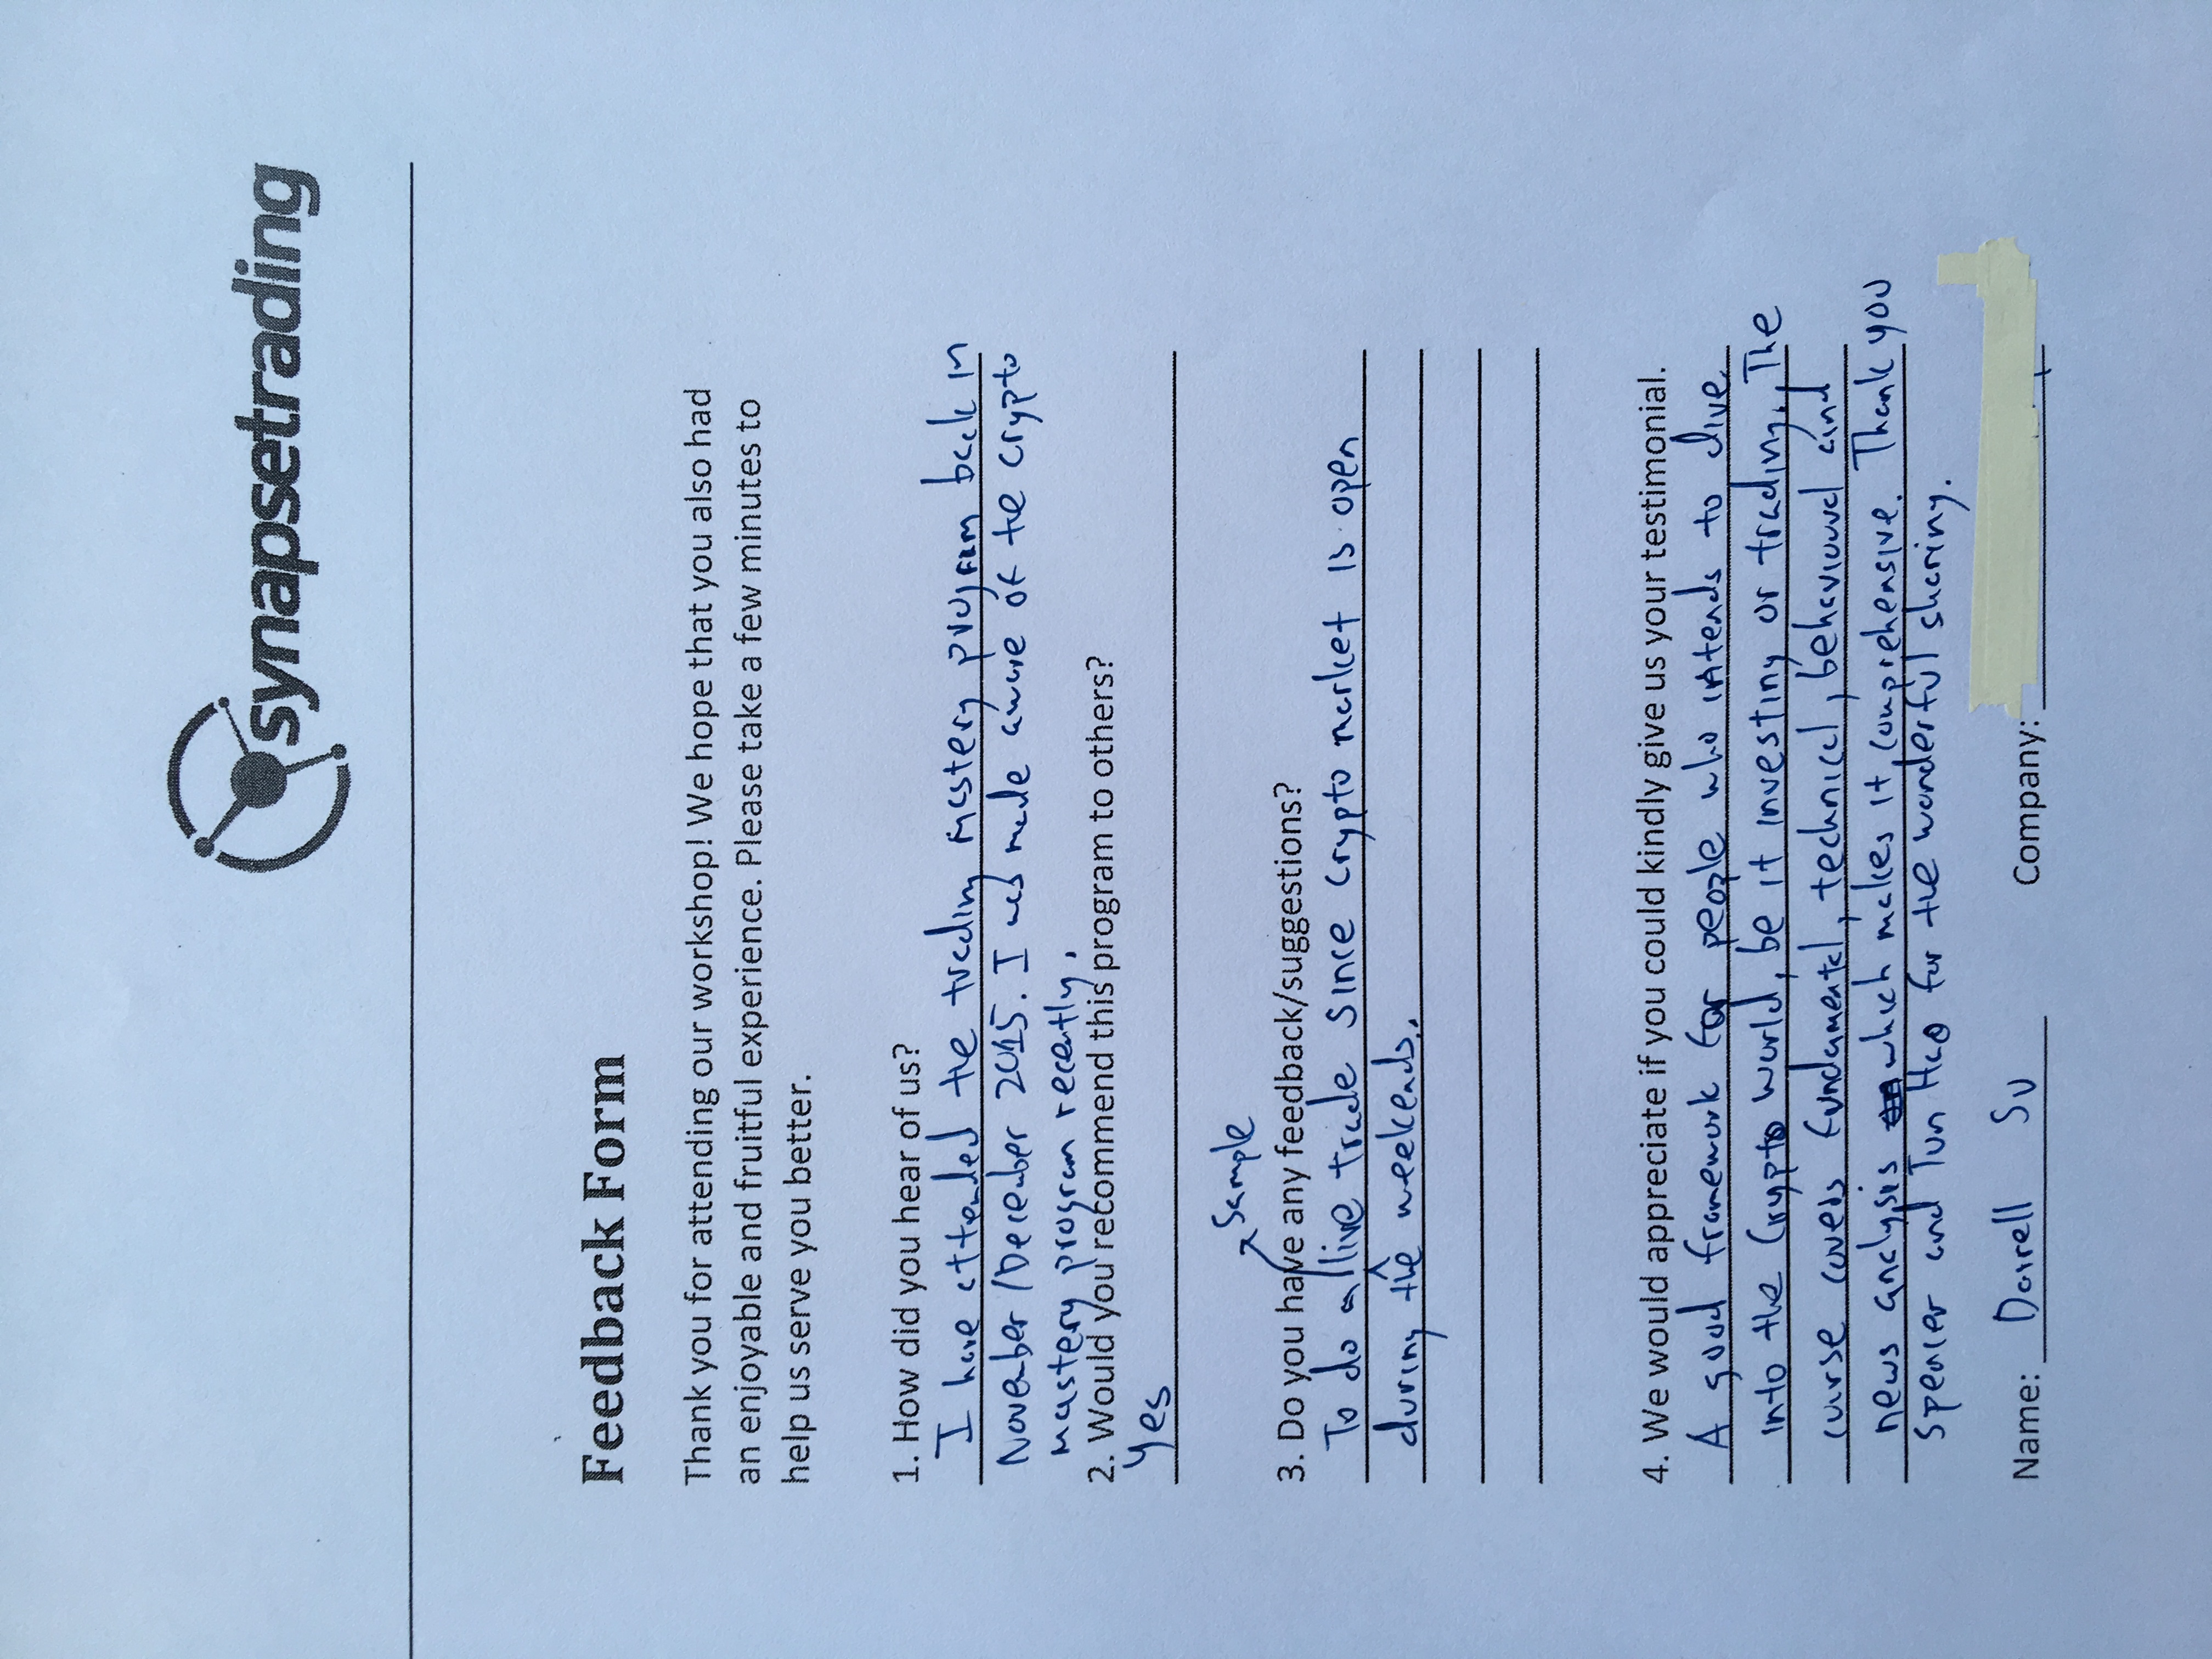 synapsetrading
Feedback Form
Thank you for attending our workshop! We hope that you also had
an enjoyable and fruitful experience. Please take a few minutes to
help us serve you better.
1. How did you hear of us?
I have attended the trading mastery program back in
November/December 2015. I was made aware of the crypto
mastery program recently.
2. Would you recommend this program to others?
Yes
3. Do you have any feedback/suggestions?
sample
To do a live trade since crypto market is open
during the weekends.
4. We would appreciate if you could kindly give us your testimonial.
A good framework for people who intends to dive
into the crypto world, be it investing or trading. The
course covers fundamental, technical, behavioural and
news analysis which makes it comprehensive. Thank you
Spencer and Jun Hao for the wonderful sharing.
Name: Darell Su Company: